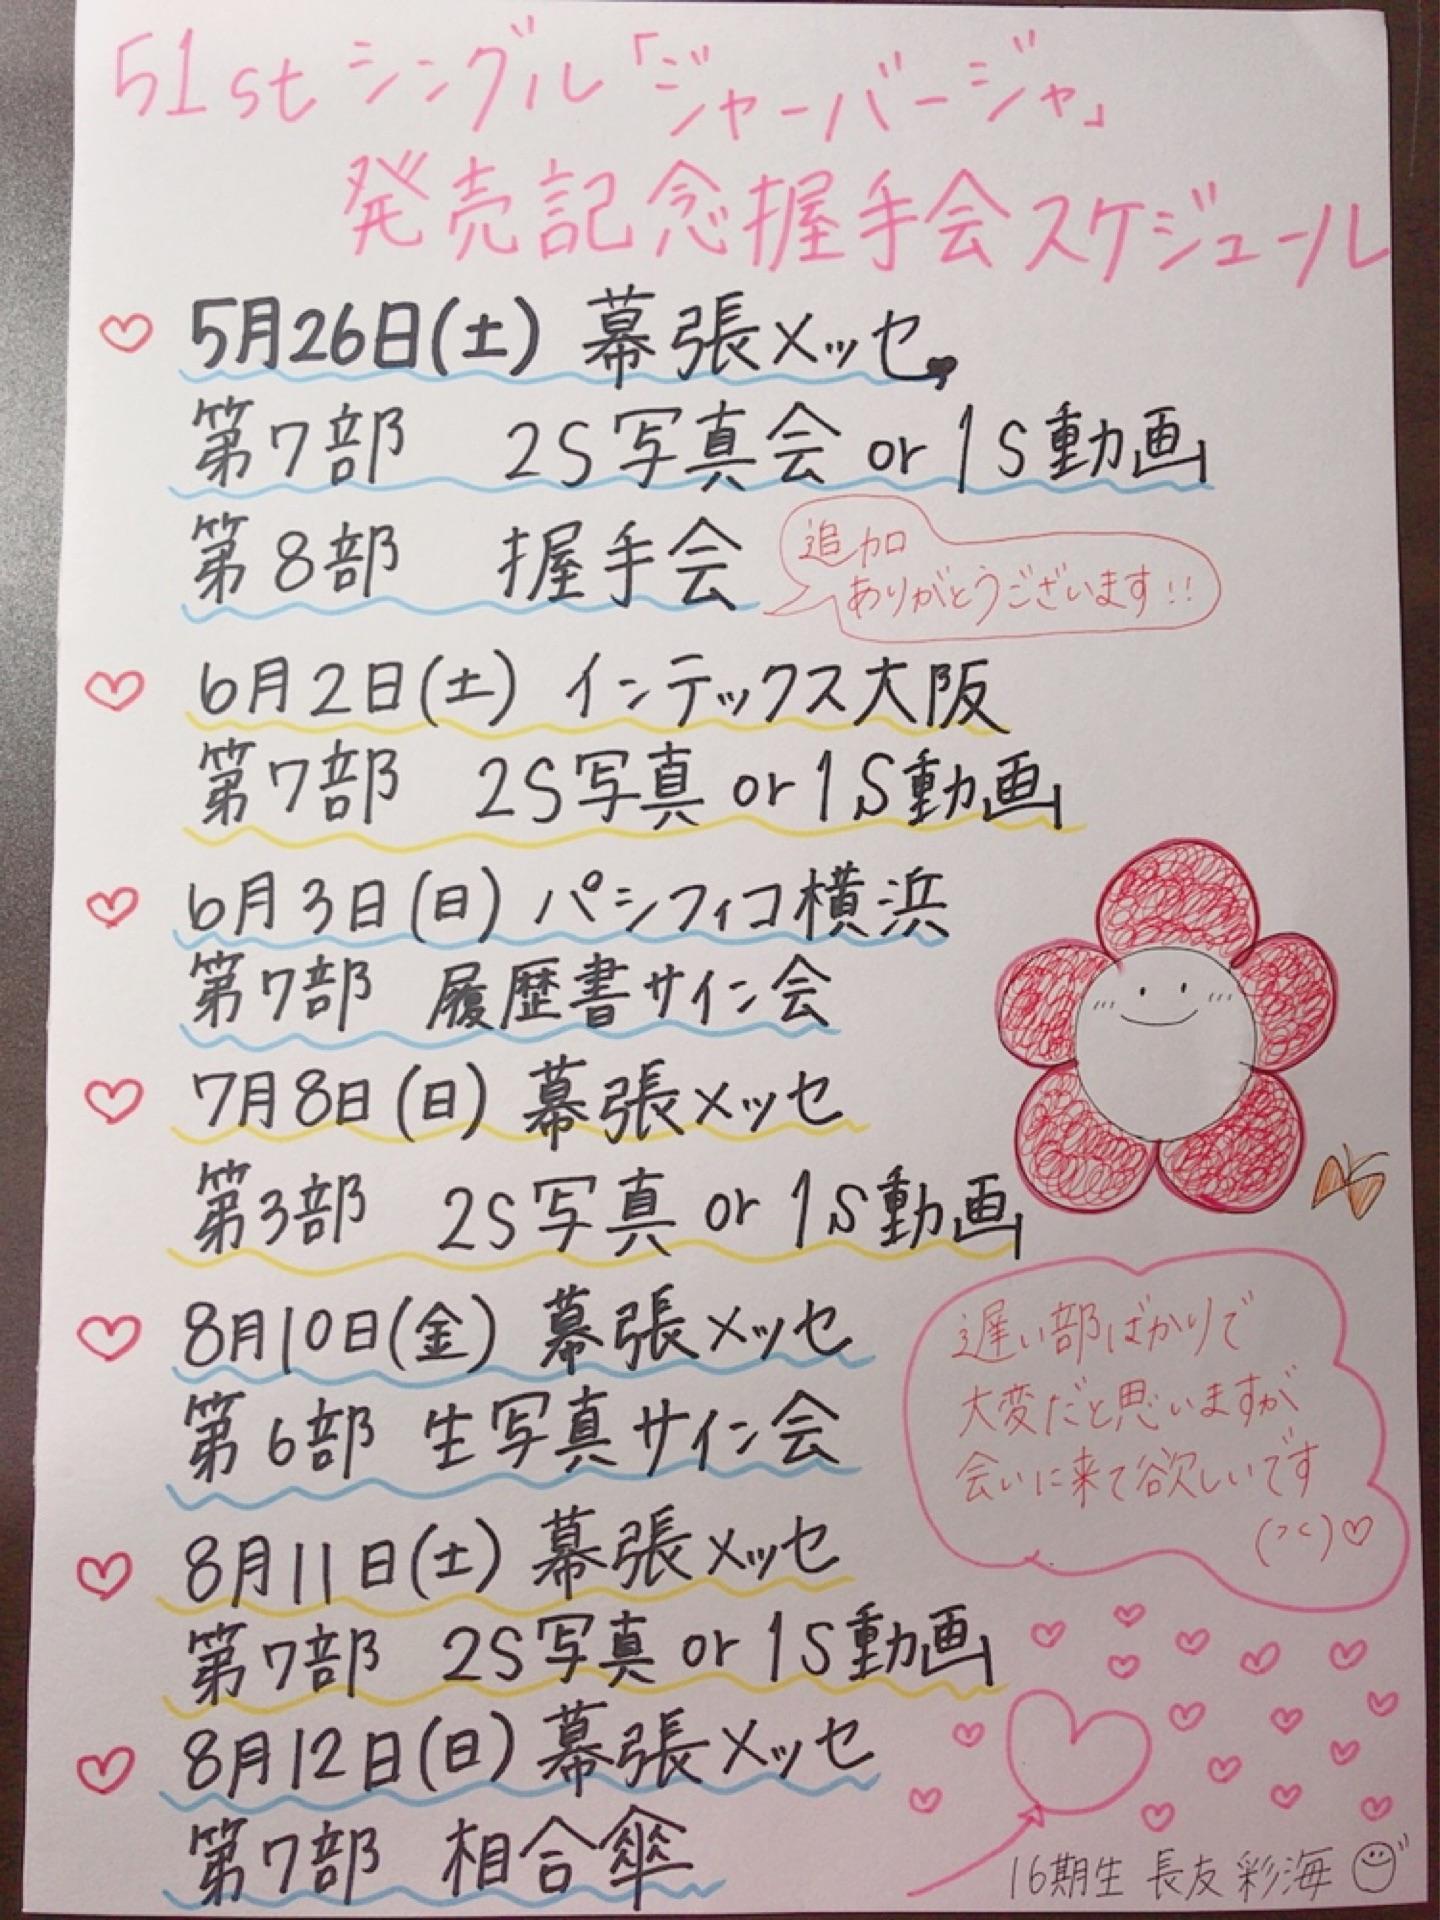 51stシングル「ジャーバージャ」
発売記念握手会スケジュール
5月26日(土) 幕張メッセ
第7部 2S写真会 or 1S動画
第8部 握手会
追加
ありがとうございます!!
6月2日(土) インテックス大阪
第7部 2S写真 or 1S動画
6月3日(日) パシフィコ横浜
第7部 履歴書サイン会
7月8日(日) 幕張メッセ
第3部 2S写真 or 1S動画
8月10日(金) 幕張メッセ
第6部 生写真サイン会
遅い部ばかりで
大変だと思いますが
会いに来て欲しいです
(つく)♡
8月11日(土) 幕張メッセ
第7部 2S写真 or 1S動画
8月12日(日) 幕張メッセ
第7部 相合傘
16期生 長友彩海